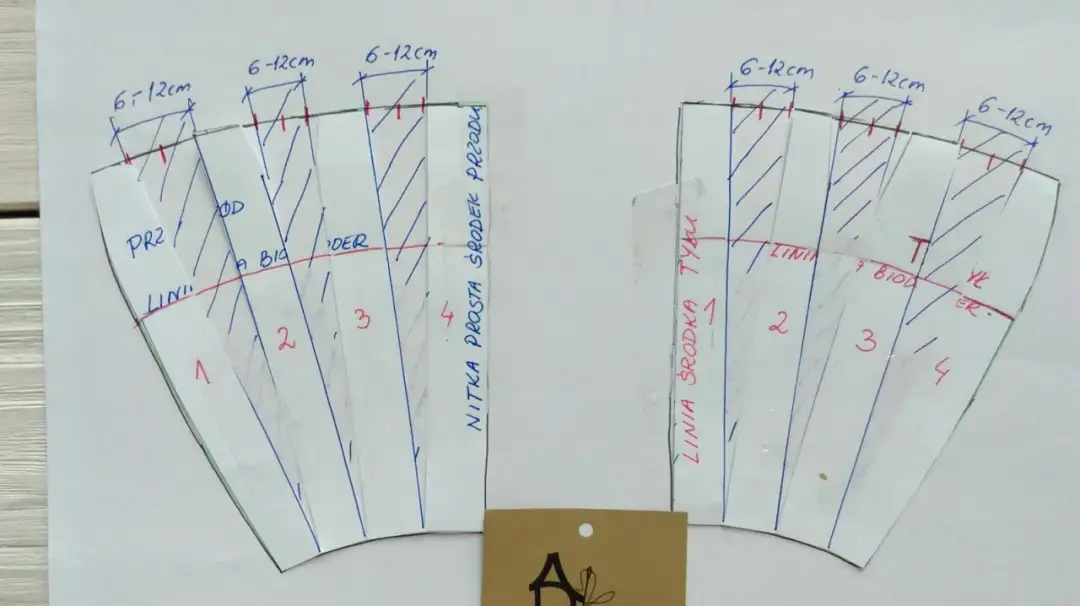 6-12cm
6-12cm
6-12cm
PRZ
ÓD
LINII
A BIO
DER
1
2
3
4
NITKA PROSTA ŚRODEK PRZODU
6-12cm
6-12cm
6-12cm
LINIA ŚRODKA TYŁU
T
YŁ
LINII
BIOD
ER.
1
2
3
4